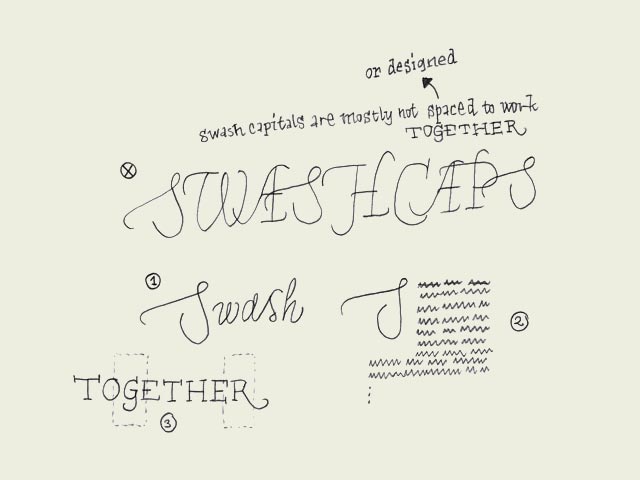 or designed
swash capitals are mostly not spaced to work
TOGETHER
X
SWASH CAPS
1
Swash
S
2
TOGETHER
3